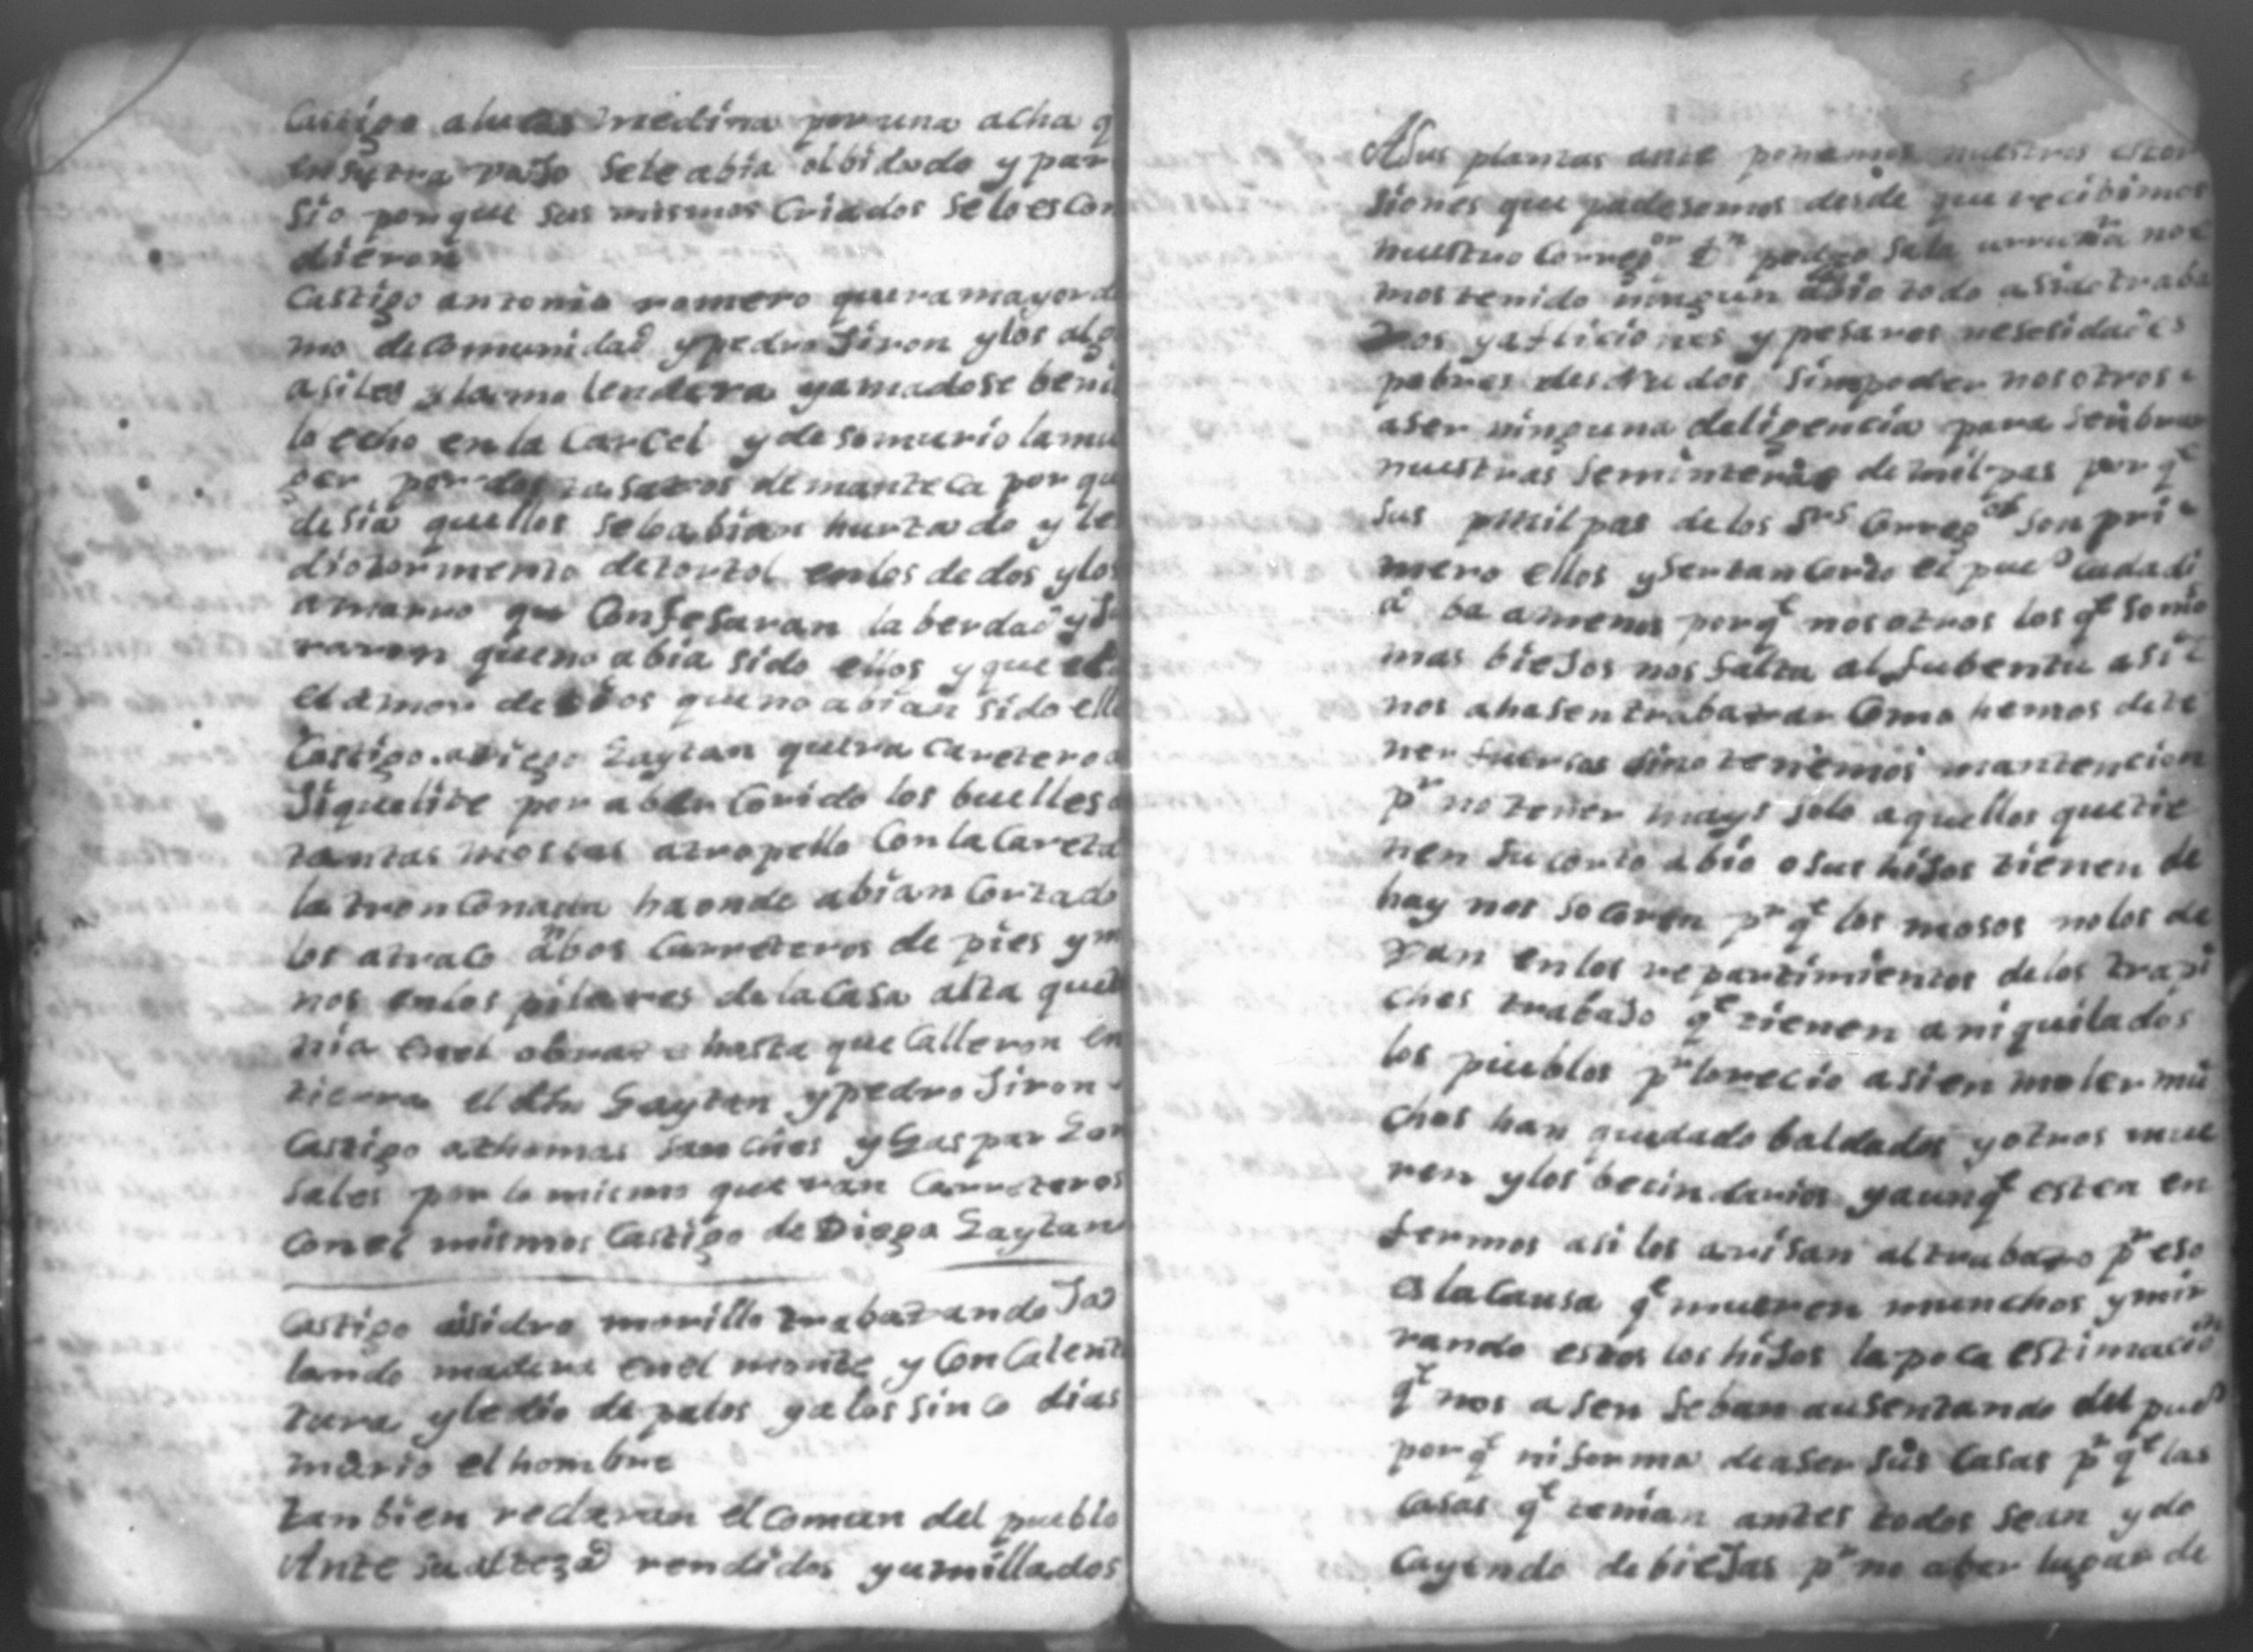 Castigo a lucas medina por una acha q
en su tra vaJo se le abia olbidado y par
sio porque sus mismos Criados se lo escon
dieron
Castigo antonio romero quera mayordo
mo de Comunidad y pedro Jiron y los alg
asiles y la mo lendera yamadose beni
lo echo en la Carcel y de so murio la mu
ger por dos tasatos de manteca por qu
desia quellos selo abian hurtado y le
dio tormento de tortol en los dedos y los
amarro que Confesaran la berdad y Ju
raron que no abia sido ellos y que
el amor de dios que no abian sido ello
Castigo a Diego Gaytan quera Caretero
Jiquelite por aber Corido los buelles
tantas moscas atropello Con la Careta
la tronConada haonde abian Cortado
los atraco anbos Carreteros de pies y m
nos en los pilares de la Casa alta que te
nia en el obraje hasta que Calleron en
tierra el dho Gaytan y pedro Jiron
Castigo a thomas sanches y Gaspar Gon
sales por lo mismo queran Carreteros
con el mismos Castigo de Diego Gaytan
Castigo aisidro morillo trabaxando Ja
lando madera en el monte y Con Calent
tura y le dio de palos ya los sinco dias
murio el hombre
tanbien reclaran el comun del pueblo
Ante su alteza rendidos y umillados
A Sus plantas ante ponemos nuestros estor
siones que padesemos desde que recibimos
nuestro Correg.or D.n pedro Sala urruña no e
mos tenido ningun abio todo a sido traba
xos y aflicciones y pesares nesesidades
pobres desNudos sin poder nosotros
aser ninguna deligencia para senbrar
nuestras seminteras de milpas por q.e
sus milpas de los S.res Correg.es son pri
mero ellos y Ser tan Corto el pue.o cada di
a ba a menos porq.e nosotros los q.e somo
mas bieJos nos falta al Jubentu asi
nos ahasen trabaxar Como hemos de te
ner fuersas sino tenemos mantencion
p.r no tener mays solo aquellos que tie
nen su corto abio o sus hiJos tienen de
hay nos socoren p.r q.e los mosos no los de
xan en los repartimientos de los trapi
ches trabaJo q.e tienen aniquilados
los pueblos p.r lo recio asi en moler mu
chos han quedado baldados y otros mue
ren y los becindarios y aunq.e esten en
fermos asi los arisan al trabaxo p.r eso
es la Causa q.e mueren munchos y mir
rando estos los hiJos la poca estimacion
q.e nos asen se ban ausentando del pue.o
porq.e ni forma de aser sus Casas p.r q.e las
casas q.e tenian antes todos sean ydo
Cayendo de bieJas p.r no aber lugar de